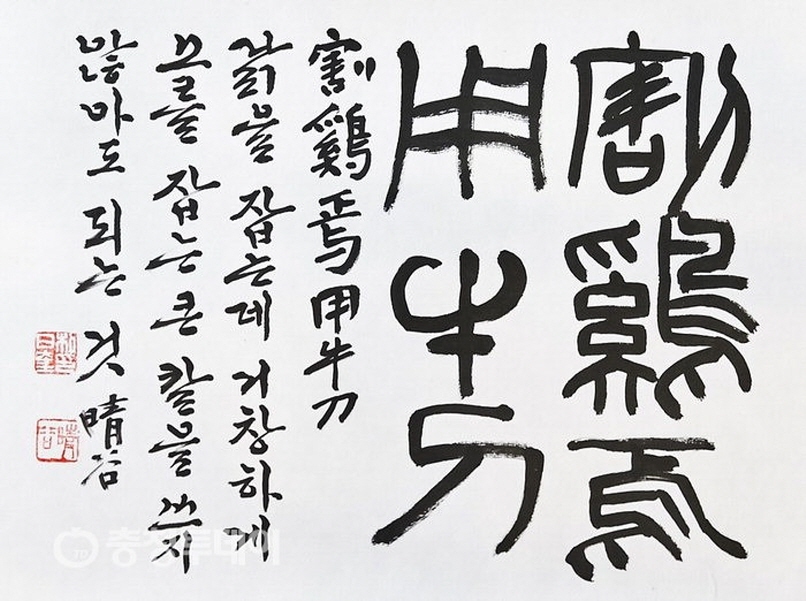 割鷄焉
用牛刀
割鷄焉用牛刀
닭을 잡는데 거창하게
소를 잡는 큰 칼을 쓰지
않아도 되는 것 晴谷
충청투데이